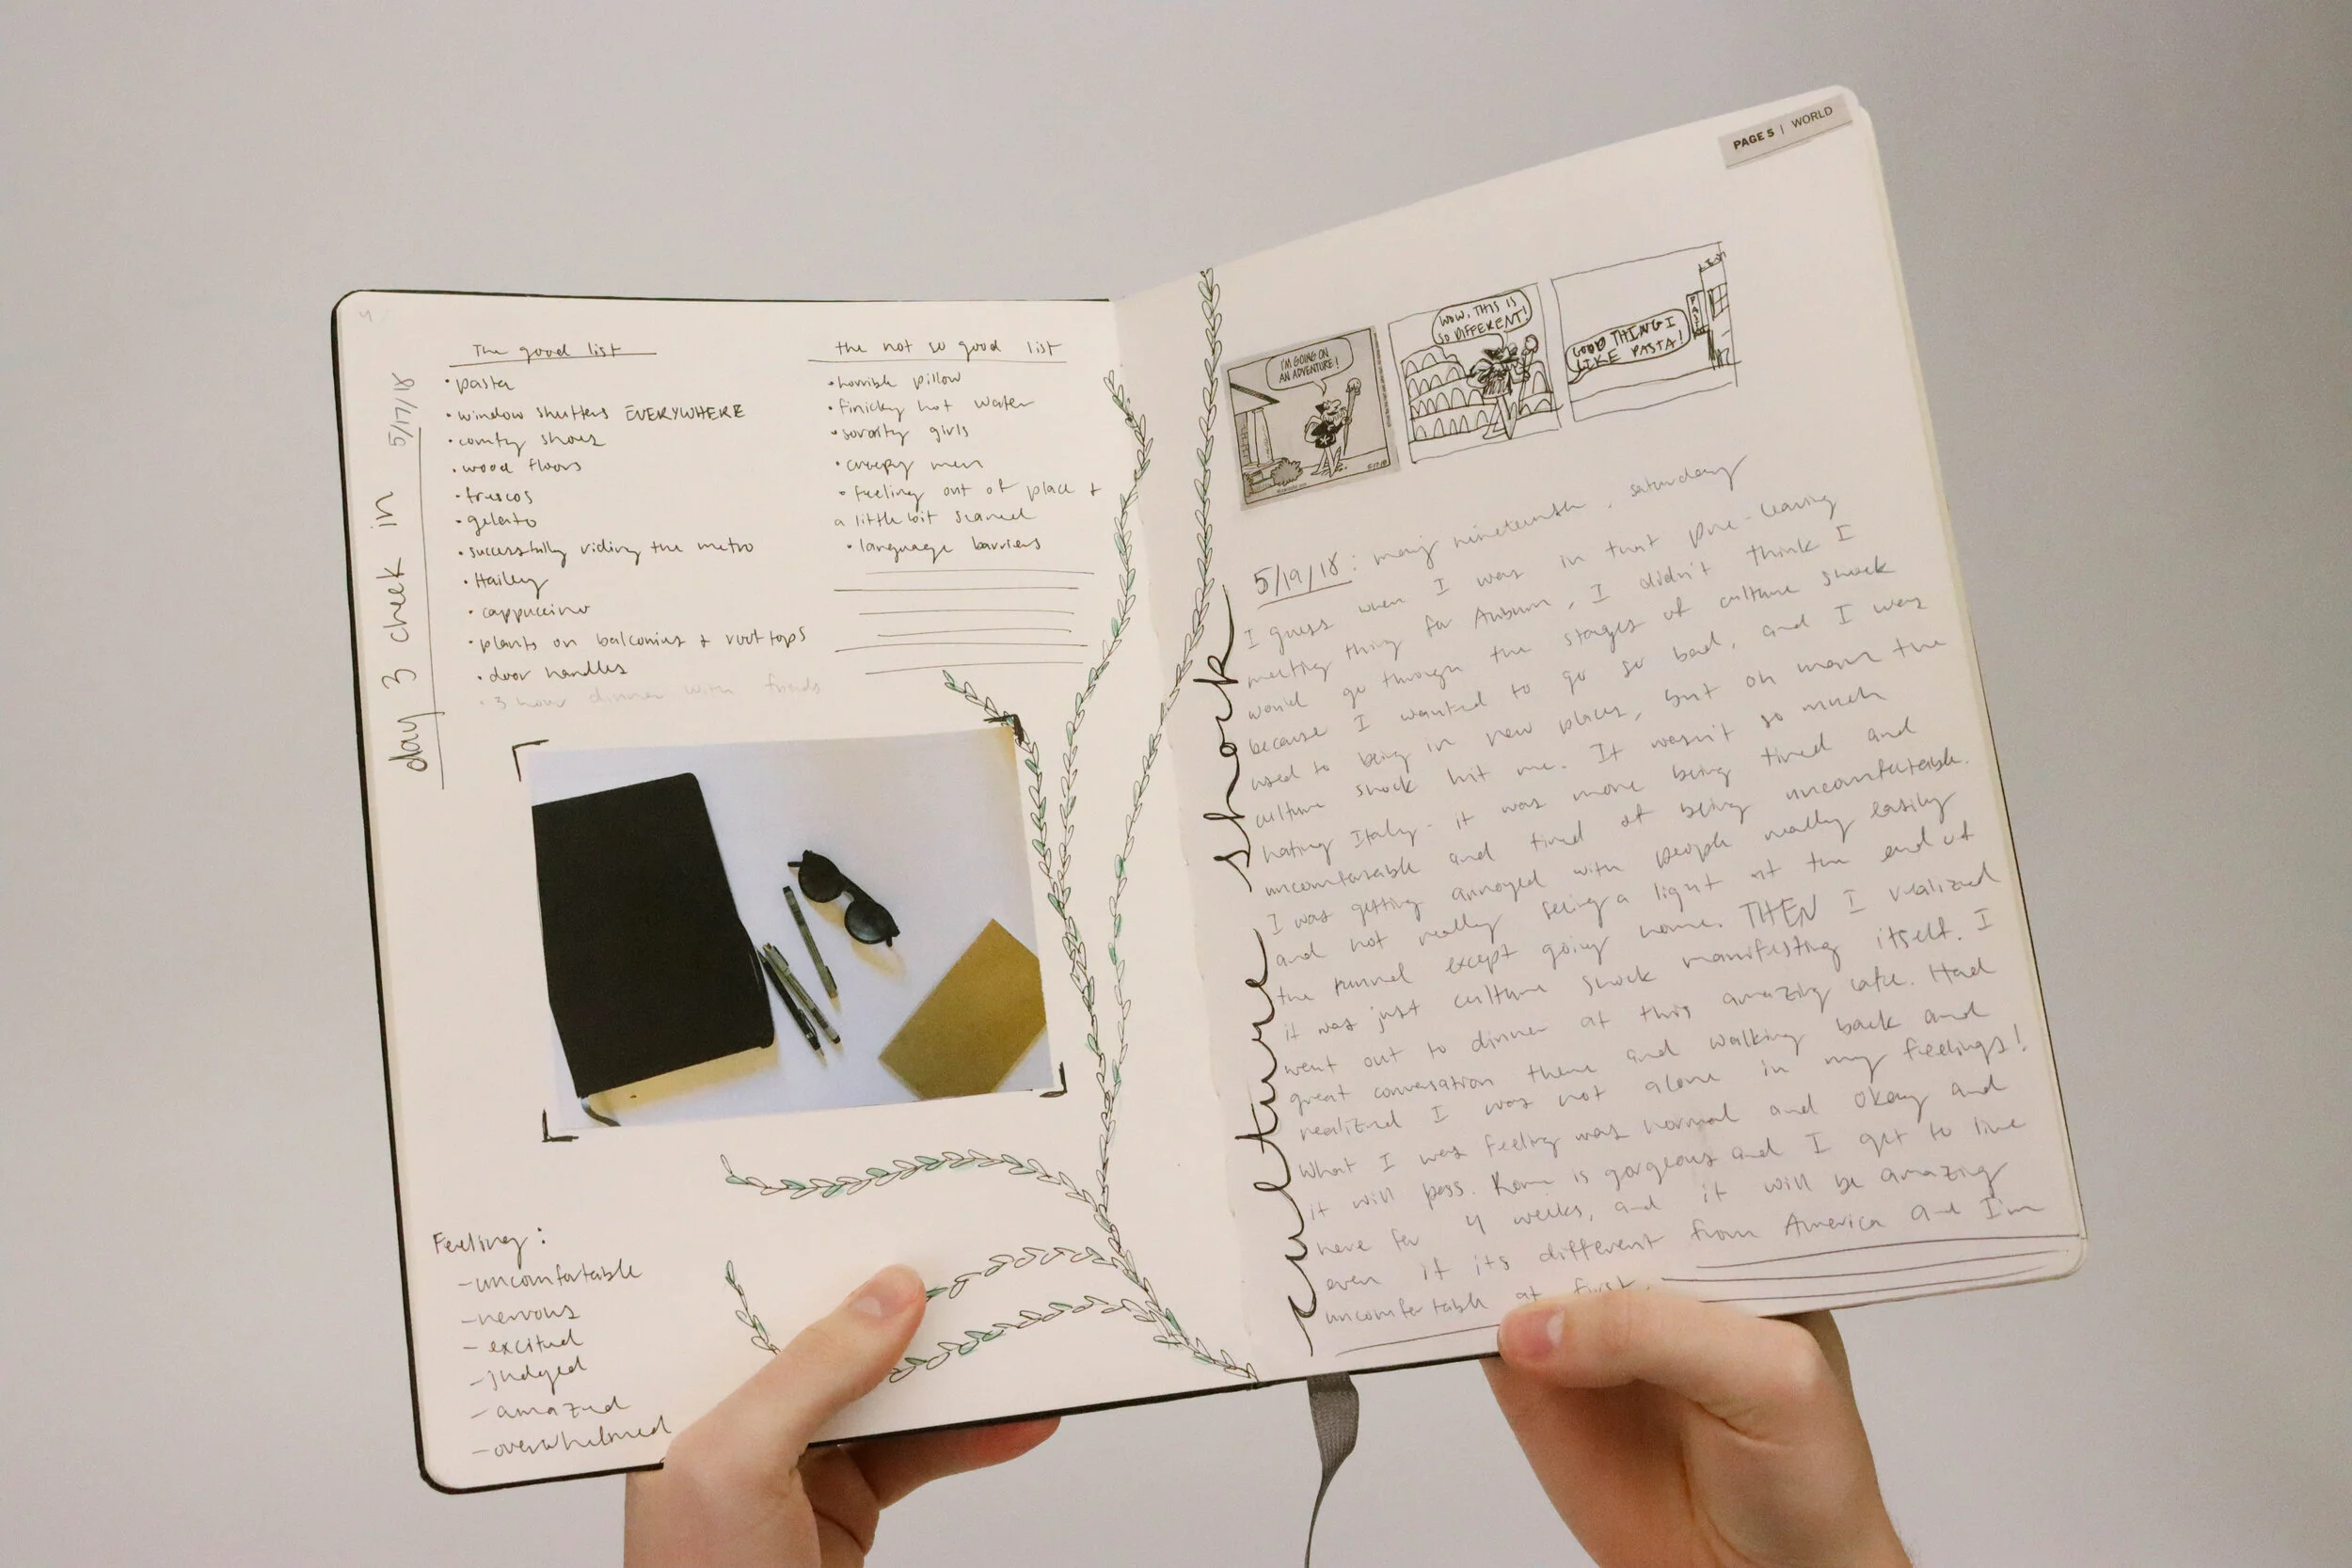 4
day 3 check in 5/17/18
The good list
• pasta
• window shutters EVERYWHERE
• comfy shoes
• wood floors
• frescos
• gelato
• successfully riding the metro
• Hailey
• cappuccino
• plants on balconies + rooftops
• door handles
• 3 hour dinner with friends
the not so good list
• horrible pillow
• finicky hot water
• sorority girls
• creepy men
• feeling out of place +
a little bit scared
• language barriers
Feeling:
- uncomfortable
- nervous
- excited
- judged
- amazed
- overwhelmed
PAGE 5 | WORLD
I'M GOING ON
AN ADVENTURE!
WOW, THIS IS
SO DIFFERENT!
GOOD THING I
LIKE PASTA!
culture shock
5/19/18: may nineteenth, saturday
I guess when I was in that pre-leaving
meeting thing for Auburn, I didn't think I
would go through the stages of culture shock
because I wanted to go so bad, and I was
used to being in new places, but oh man the
culture shock hit me. It wasn't so much
hating Italy - it was more being tired and
uncomfortable and tired of being uncomfortable.
I was getting annoyed with people really easily
and not really seeing a light at the end of
the tunnel except going home. THEN I realized
it was just culture shock manifesting itself. I
went out to dinner at this amazing cafe. Had
great conversation there and walking back and
realized I was not alone in my feelings!
What I was feeling was normal and okay and
it will pass. Rome is gorgeous and I get to live
here for 4 weeks, and it will be amazing
even if its different from America and I'm
uncomfortable at first.